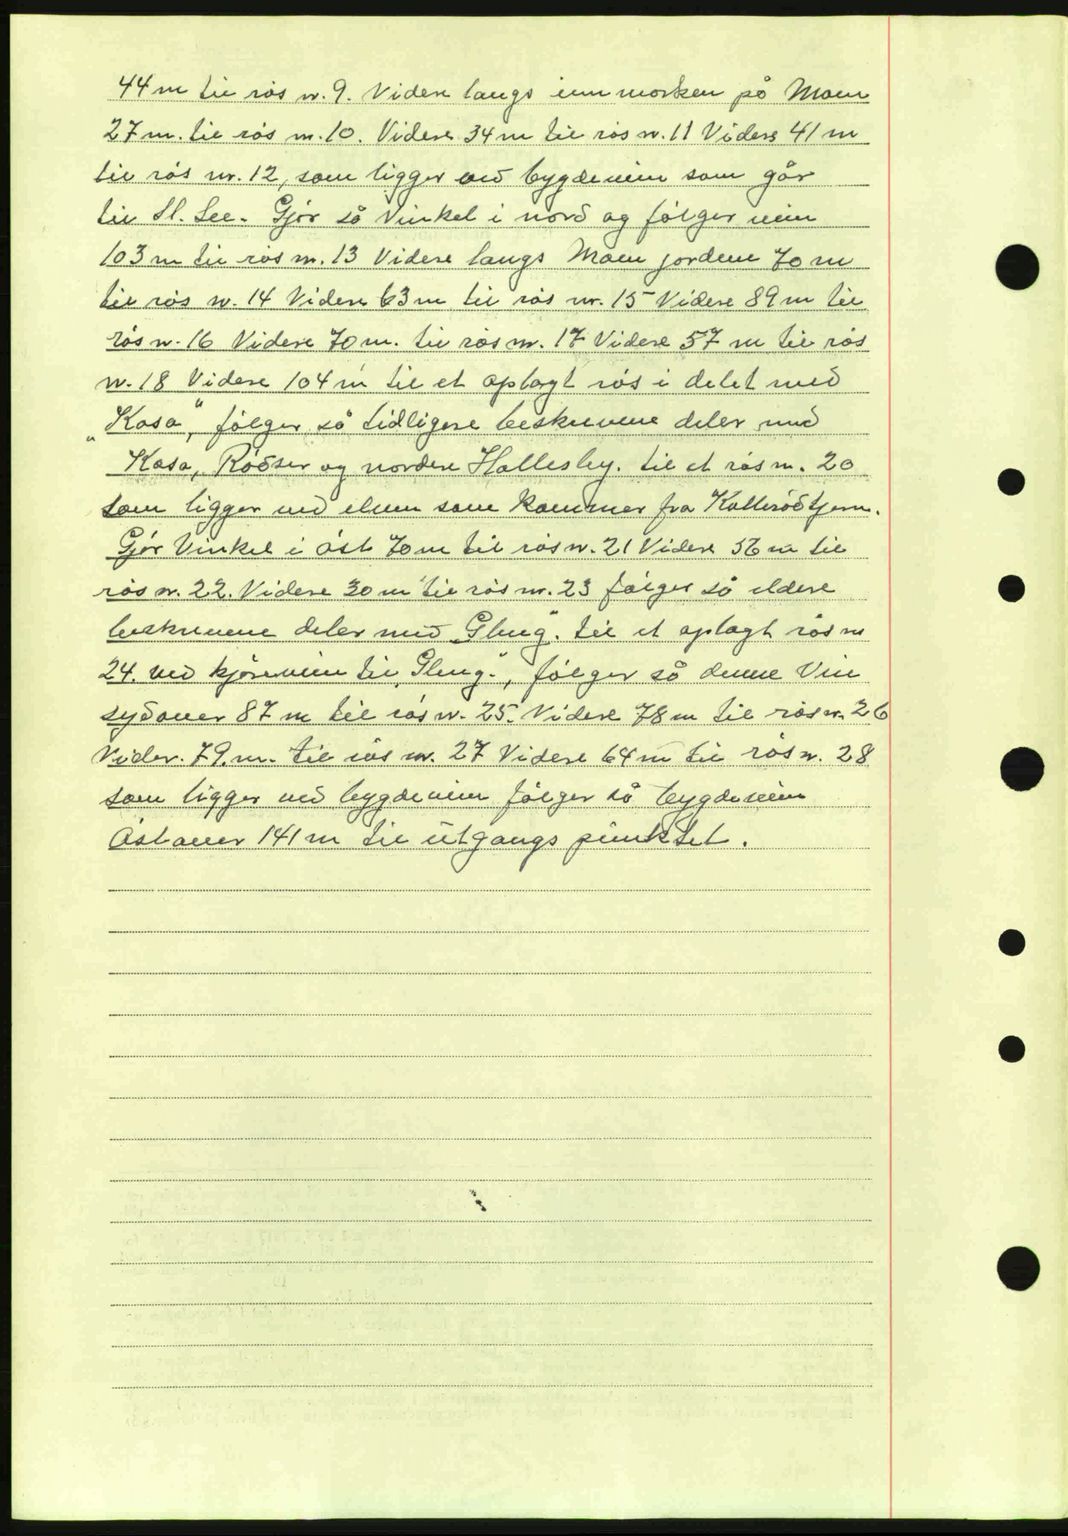 44 m til rös nr. 9. Videre langs innmarken på Moen
27 m. til rös nr. 10. Videre 34 m til rös nr. 11 Videre 41 m
til rös nr. 12, som ligger ved bygdeveien som går
til St. Lee. Gjör så Vinkel i nord og fölger veien
103 m til rös nr. 13 Videre langs Moen jordene 70 m
til rös nr. 14 Videre 63 m til rös nr. 15 Videre 89 m til
rös nr. 16 Videre 70 m. til rös nr. 17 Videre 57 m til rös
nr. 18 Videre 104 m til et oplagt rös i delet med
„Kasa", fölger så tidligere beskrevene deler med
Kasa, Rödser og nordre Hallesby. til et rös nr. 20
som ligger ved elven som kommer fra Kallerödtjern.
Gjör Vinkel i öst 70 m til rös nr. 21 Videre 56 m til
rös nr. 22. Videre 30 m til rös nr. 23 fölger så eldere
beskrevene deler med „Gleng". til et oplagt rös nr
24. ved kjöreveien til „Gleng", fölger så denne Vei
sydover 87 m til rös nr. 25. Videre 78 m til rös nr. 26
Videre. 79. m. til rös nr. 27 Videre 64 m til rös nr. 28
som ligger ved bygdeveien fölger så bygdeveien
östover 141 m til utgangs punktet.